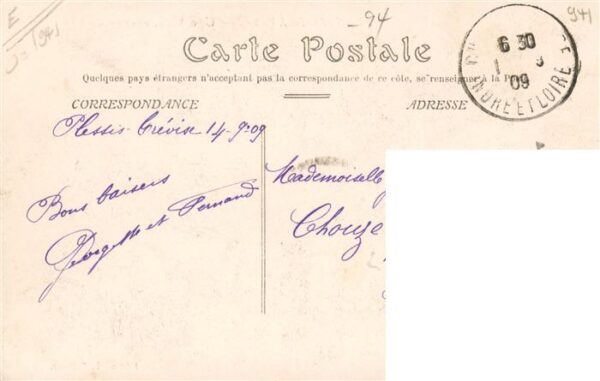 E
94
-94
941
Carte Postale
Quelques pays étrangers n'acceptant pas la correspondance de ce côté, se renseigner à la P
CORRESPONDANCE
ADRESSE
6 30
09
INDRE ET LOIRE
Plessis Trévise 14-9-09
Bons baisers
Georgette et Fernand
Mademoiselle
Chouze